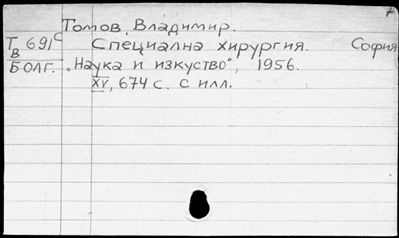 Томов, Владимир.
Т 691с Специална хирургия. София
В
БОЛГ. „Наука и изкуство", 1956.
XV, 674 с. с илл.